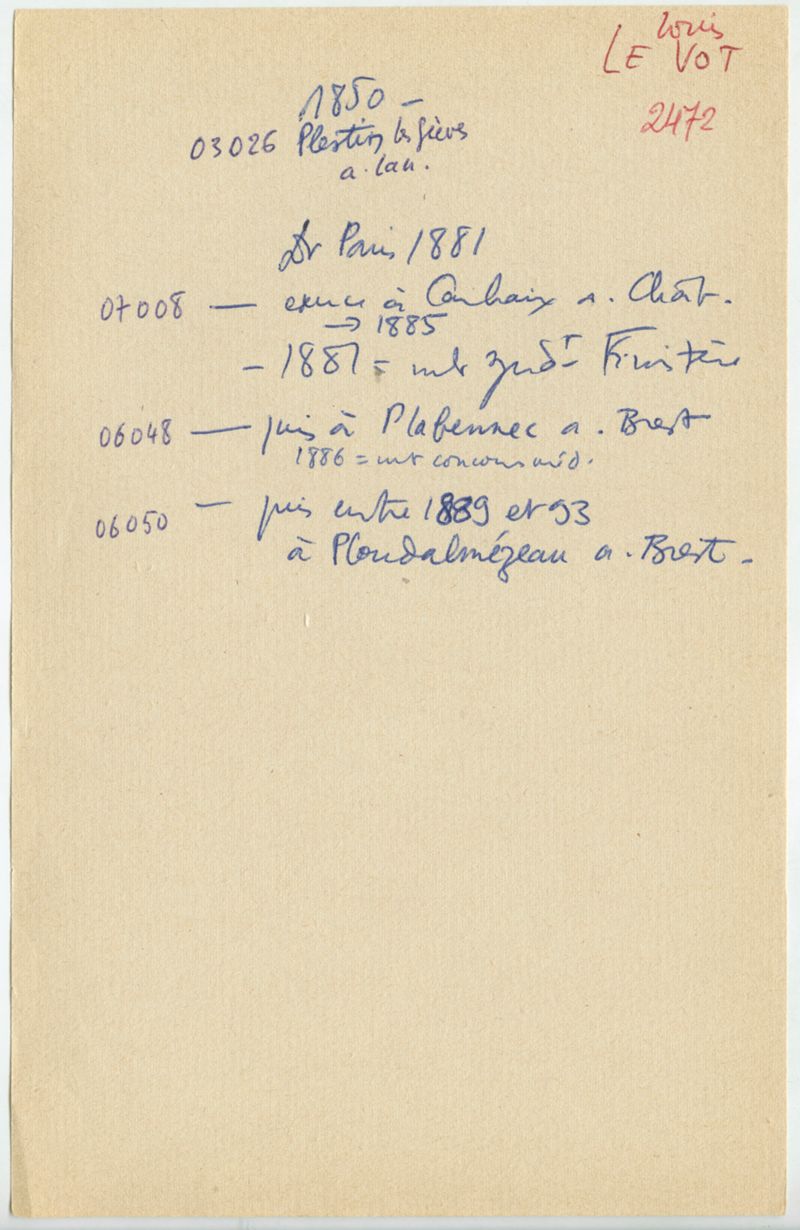 Louis
LE VOT
2472
1850 –
03026 Plestin les grèves
a. Lan.
Dr Paris 1881
07008 — exerce à Carhaix a. Chât.
→ 1885
– 1881 = mbr synd^t Finistère
06048 — puis à Plabennec a. Brest
1886 = mbr concours méd.
06050 – puis entre 1889 et 93
à Ploudalmézeau a. Brest –